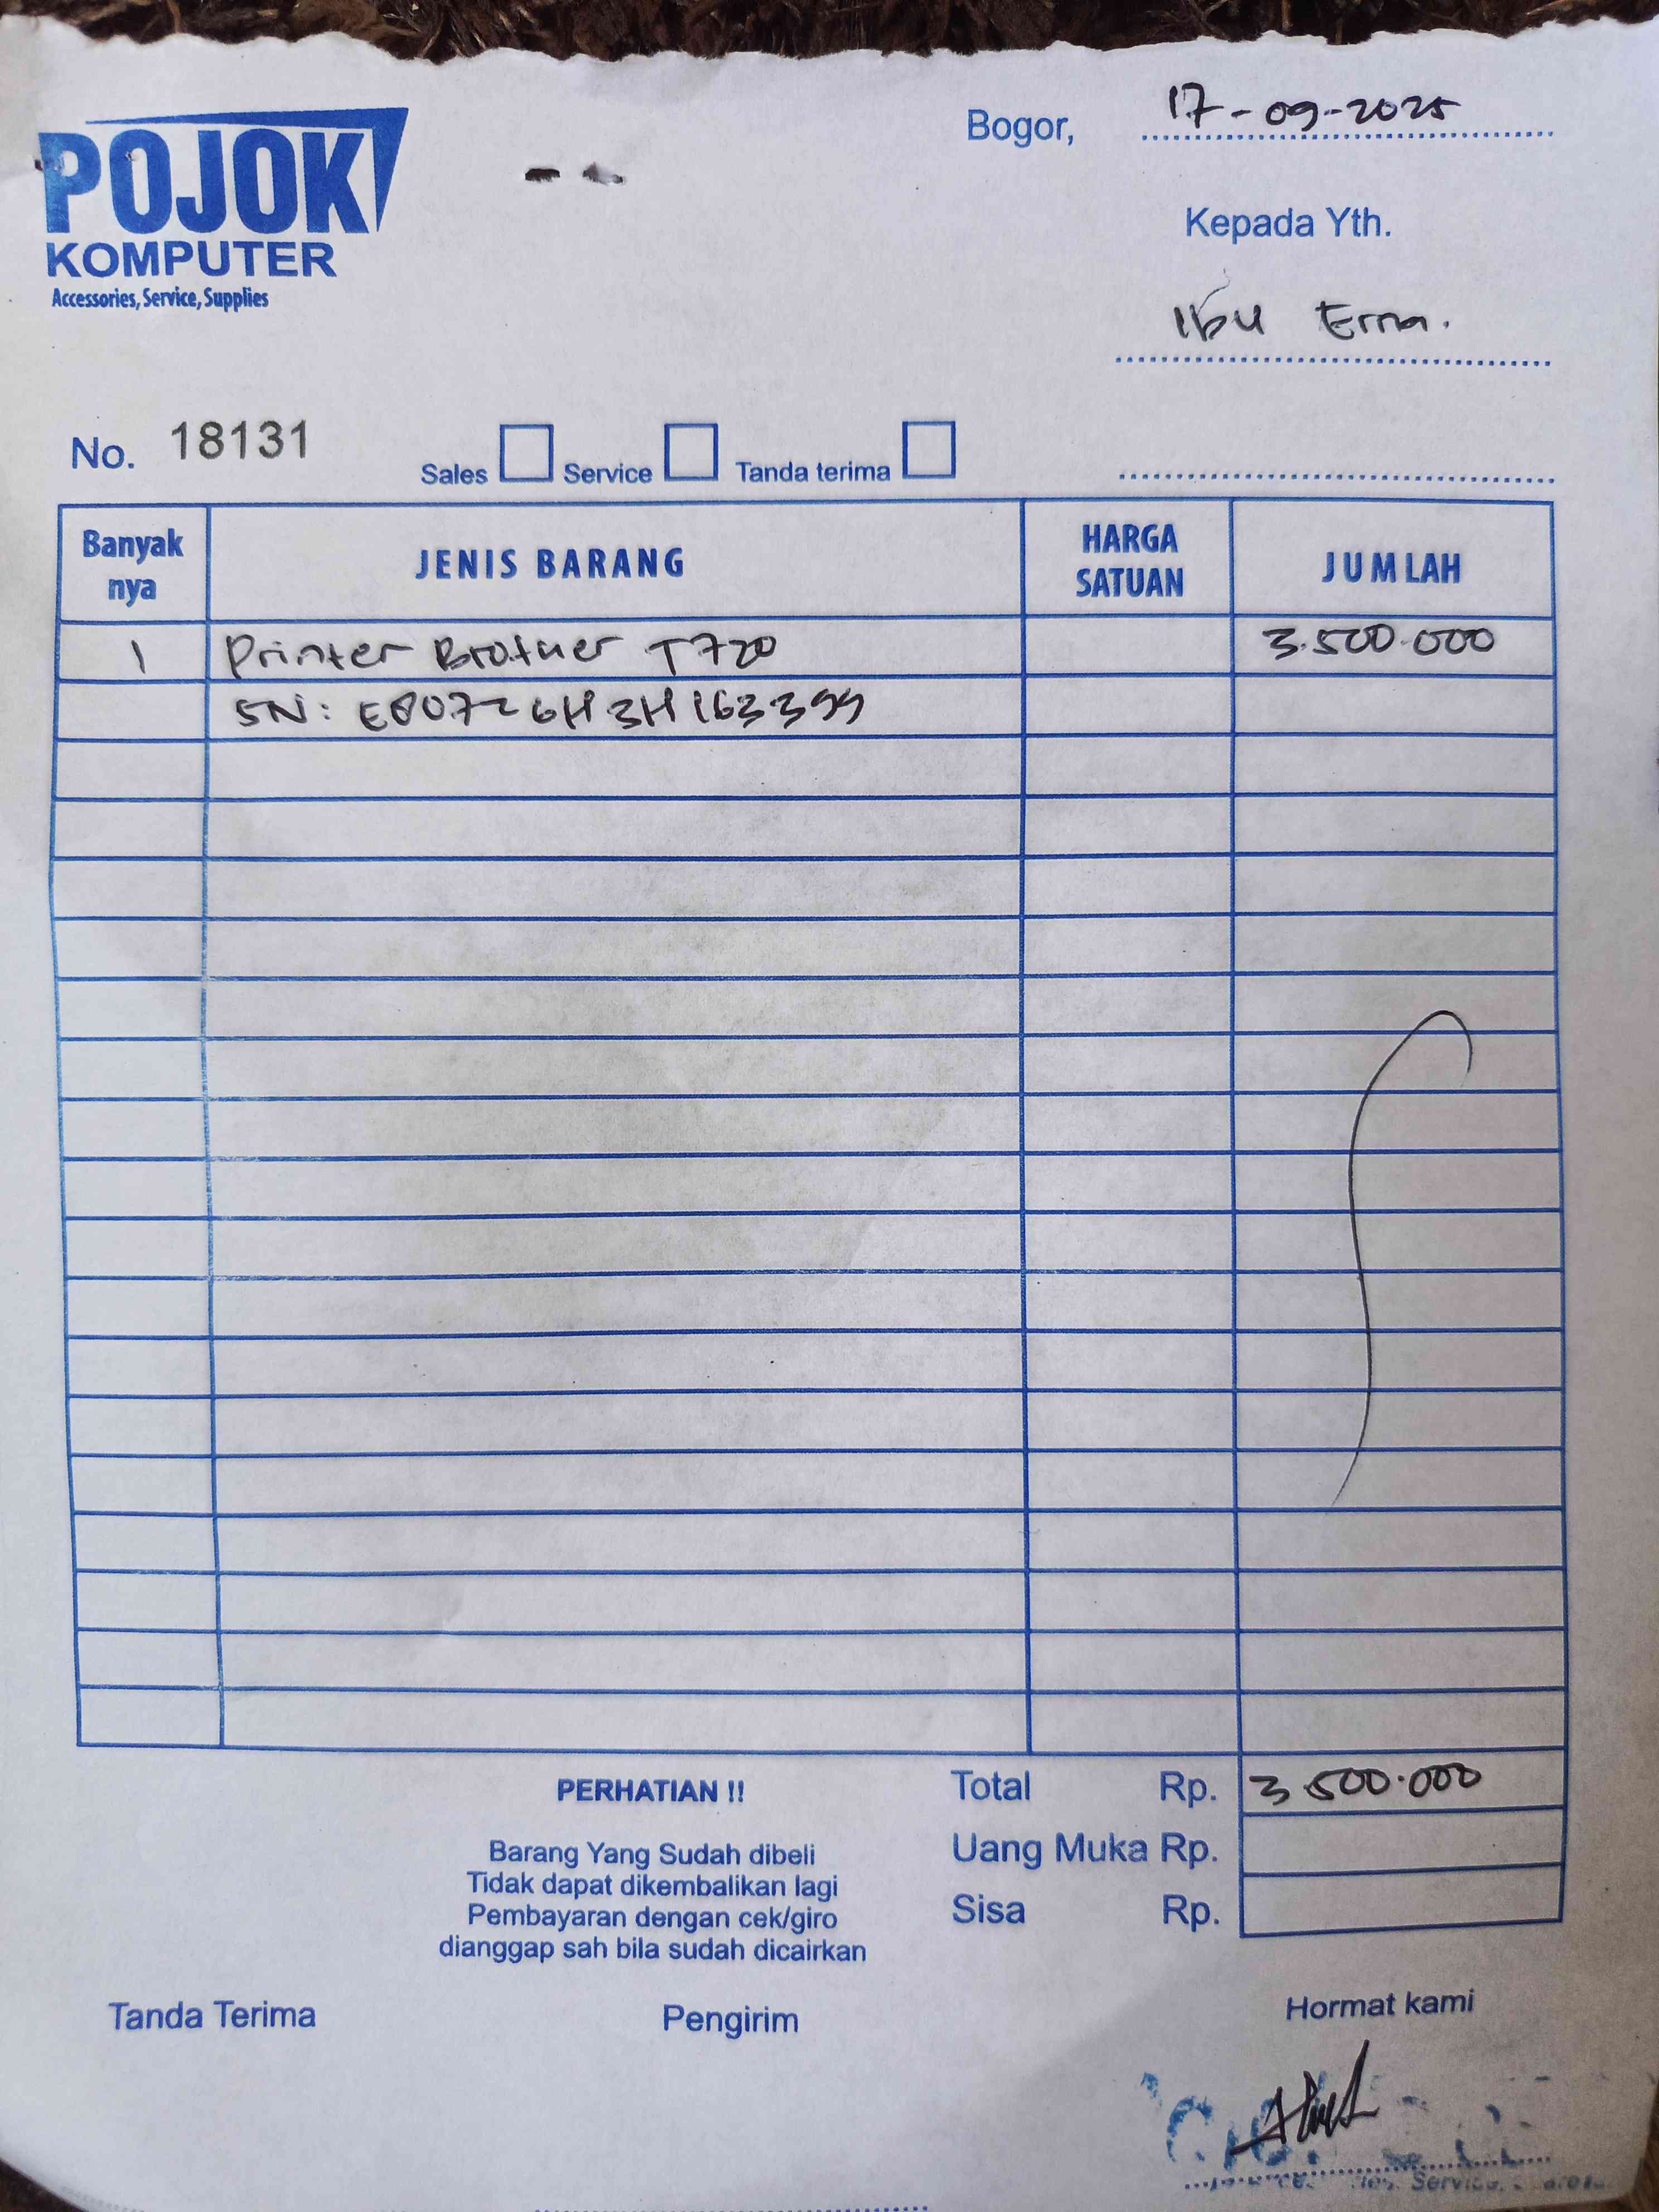 POJOK
KOMPUTER
Accessories, Service, Supplies
Bogor, 17-09-2025
Kepada Yth.
Ibu Erna.
No. 18131 Sales Service Tanda terima
Banyak nya JENIS BARANG HARGA SATUAN JUMLAH
1 Printer Brother T720 3.500.000
SN: E80726H3H163399
Total Rp. 3.500.000
Uang Muka Rp.
Sisa Rp.
PERHATIAN !!
Barang Yang Sudah dibeli
Tidak dapat dikembalikan lagi
Pembayaran dengan cek/giro
dianggap sah bila sudah dicairkan
Tanda Terima Pengirim Hormat kami
Service,